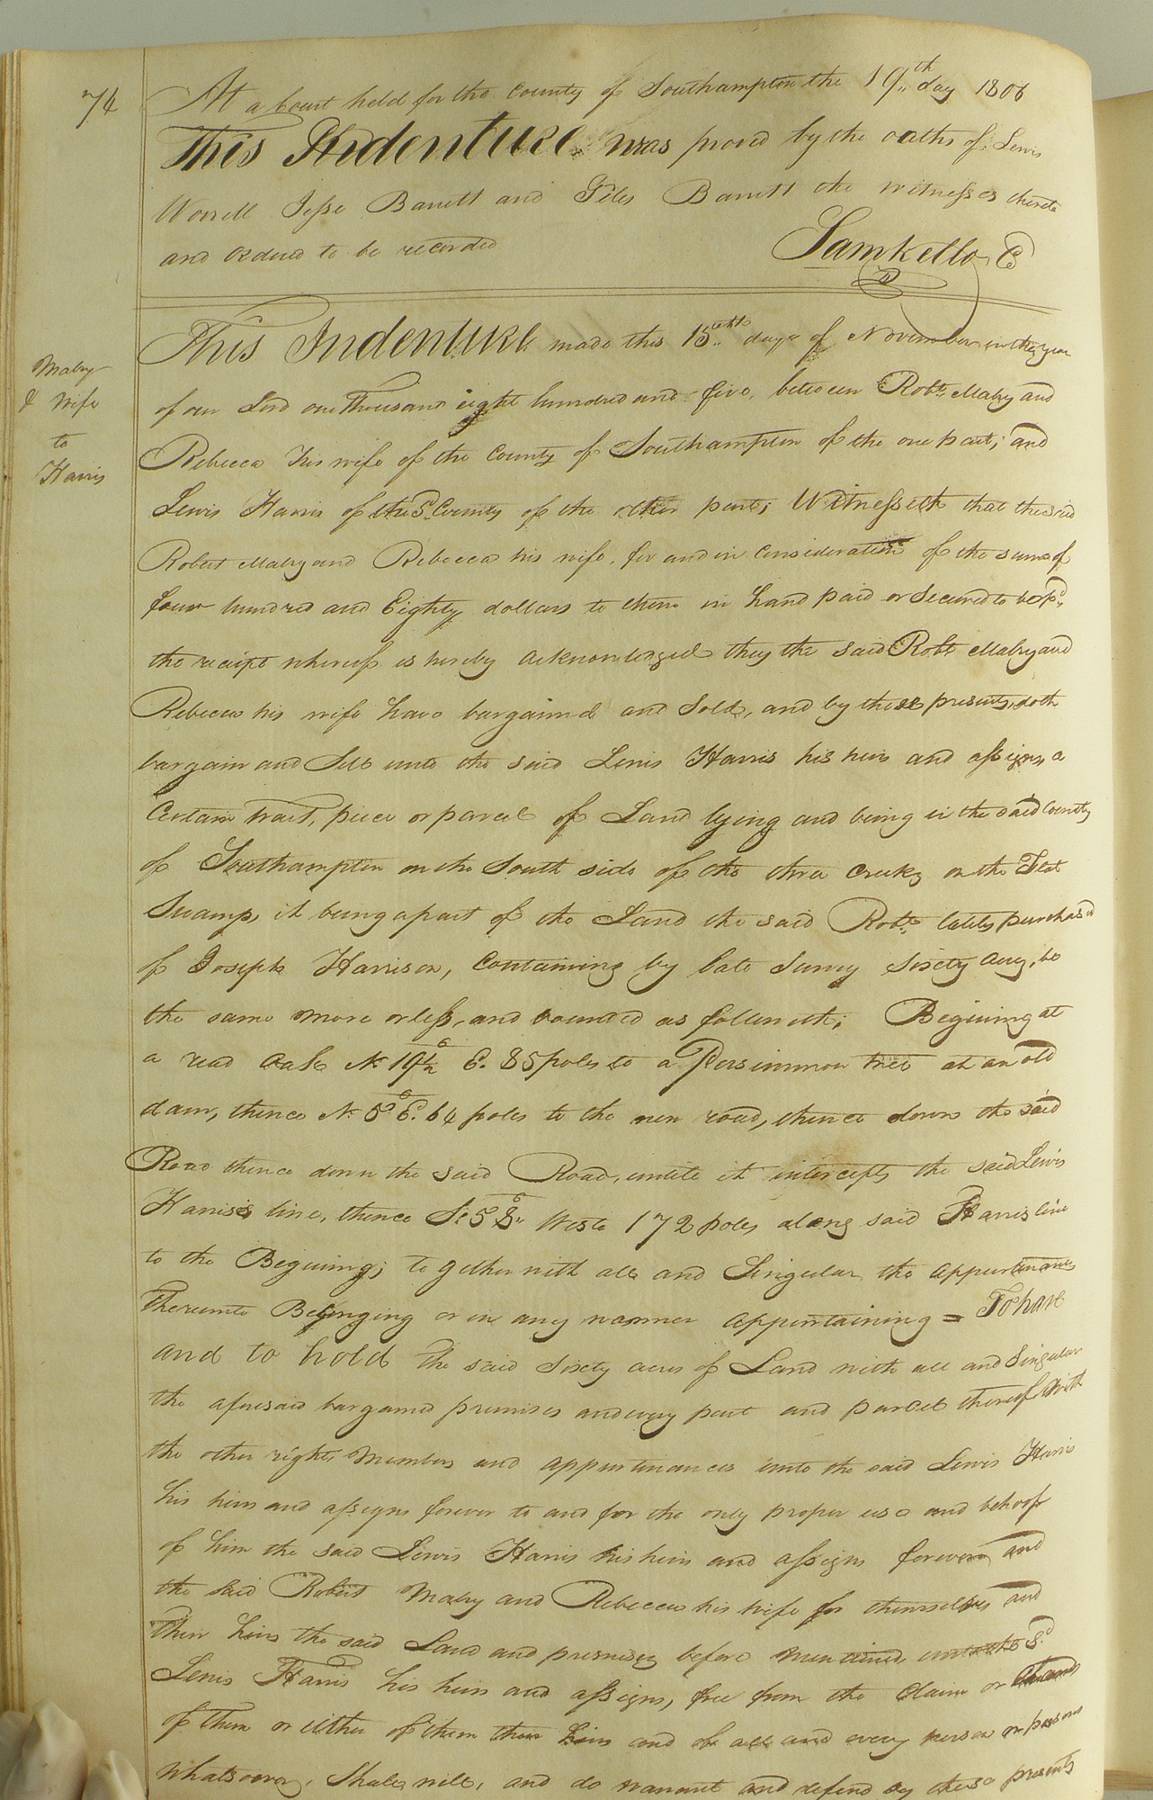 74
At a Court held for the County of Southampton the 19th day 1806
This Indenture was proved by the oaths of Lewis
Worrell Jesse Barrett and Giles Barrett the witnesses thereto
and Ordered to be recorded
Sam Kello C
Mabry
& Wife
to
Harris
This Indenture made this 15th day of November in the year
of our Lord one thousand eight hundred and five, between Robt. Mabry and
Rebecca his wife of the County of Southampton of the one part; and
Lewis Harris of the Sd. County of the other part; Witnesseth that the said
Robert Mabry and Rebecca his wife, for and in Consideration of the sum of
four hundred and Eighty dollars to them in hand paid or Secured to be pd.
the receipt whereof is hereby acknowledged they the said Robt. Mabry and
Rebecca his wife have bargaind and Sold, and by these presents, doth
bargain and Sell unto the said Lewis Harris his heirs and assigns, a
Certain tract, piece or parcel of Land lying and being in the said County
of Southampton on the South side of the three creeks on the Flat
Swamp, it being a part of the Land the said Robt. lately purchasd
of Joseph Harrison, Containing by late Survey Sixty , be
the same more or less, and bounded as followeth; Begining at
a read oak N 19½ E. 85 poles to a Persimmon tree at an old
dam, thence N. 5° E. 64 poles to the new road, thence down the said
Road thence down the said Road, untill it intercepts the said Lewis
Harris's line, thence So. 5 West 172 poles along said Harris line
to the Begining; to gether with all and Singular the appurtenances
Thereunto Belonging or in any manner appertaining = To have
and to hold the said Sixty acres of Land with all and Singular
the aforesaid bargained premises and every part and parcel thereof With
the other rights Members and appurtenances unto the said Lewis Harris
his heirs and assigns forever to and for the only proper use and behoof
of him the said Lewis Harris his heirs and assigns forever, and
the said Robert Mabry and Rebecca his wife for themselves and
Their heirs the said Land and premises before mentioned unto the Sd.
Lewis Harris his heirs and assigns, free from the Claim or
of them or either of them their heirs and of all and every person or persons
whatsoever, Shall, will, and do warrant and defend by these presents